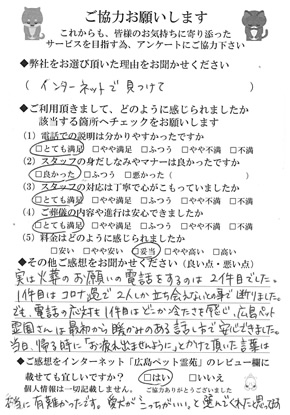 ご協力お願いします
これからも、皆様のお気持ちに寄り添った
サービスを目指す為、アンケートにご協力下さい
◆弊社をお選び頂いた理由をお聞かせください
( インターネットで見つけて )
◆ご利用頂きまして、どのように感じられましたか
該当する箇所へチェックをお願いします
(1) 電話での説明は分かりやすかったですか
□とても満足 □やや満足 □ふつう □やや不満 □不満
(2) スタッフの身だしなみやマナーは良かったですか
□良かった □ふつう □悪かった ( )
(3) スタッフの対応は丁寧で心がこもっていましたか
□とても満足 □やや満足 □ふつう □やや不満 □不満
(4) ご葬儀の内容や進行は安心できましたか
□とても満足 □やや満足 □ふつう □やや不満 □不満
(5) 料金はどのように感じられましたか
□安い □やや安い □妥当 □やや高い □高い
◆その他ご感想をお聞かせください (良い点・悪い点)
実は火葬のお願いの電話をするのは2件目でした。
1件目はコロナ過で2人しか立ち会えないとの事で断りました。
でも、電話の応対も1件目はどこか冷たさを感じ、広島ペット
霊園さんは最初から暖かみのある話し方で安心できました。
当日、帰る時に「お疲れ出ませんように」とかけて頂いた言葉は
◆ご感想をインターネット「広島ペット霊苑」のレビュー欄に
載せても宜しいですか? □はい □いいえ
個人情報は一切記載しません。 ご協力ありがとうございました
本当に有難かったです。愛犬がこっちがいいって選んでくれたと思ってます